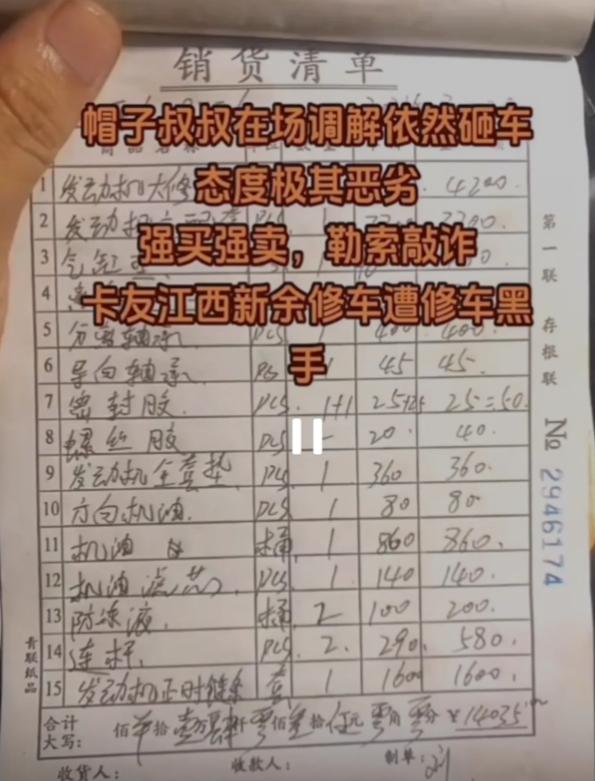 销货清单
帽子叔叔在场调解依然砸车
态度极其恶劣
强买强卖，勒索敲诈
卡友江西新余修车遭修车黑
手
1 发动机大修 4200.
2 发动机 PCS 1
3 气缸
4
5 分离轴承 PCS 1 400 400.
6 导向轴承 PCS 1 45 45.
7 密封胶. PCS. 1+1 25+25 25=50.
8 螺丝胶 PCS 20 40.
9 发动机全套垫. PCS 1 360 360.
10 方向机油. PCS 1 80 80
11 机油 桶. 1 860 860.
12 机油滤芯. PCS. 1 140 140.
13 防冻液. 桶. 2 100 200.
14 连杆. PCS. 2. 290. 580.
15 发动机正时链条 套 1 1600 1600.
合计
大写： 佰 拾 壹万肆仟零佰 拾伍元零角零分 ¥ 14035
收货人： 收款人： 制单：刘
第一联 存根联
№ 2946174
青联纸品